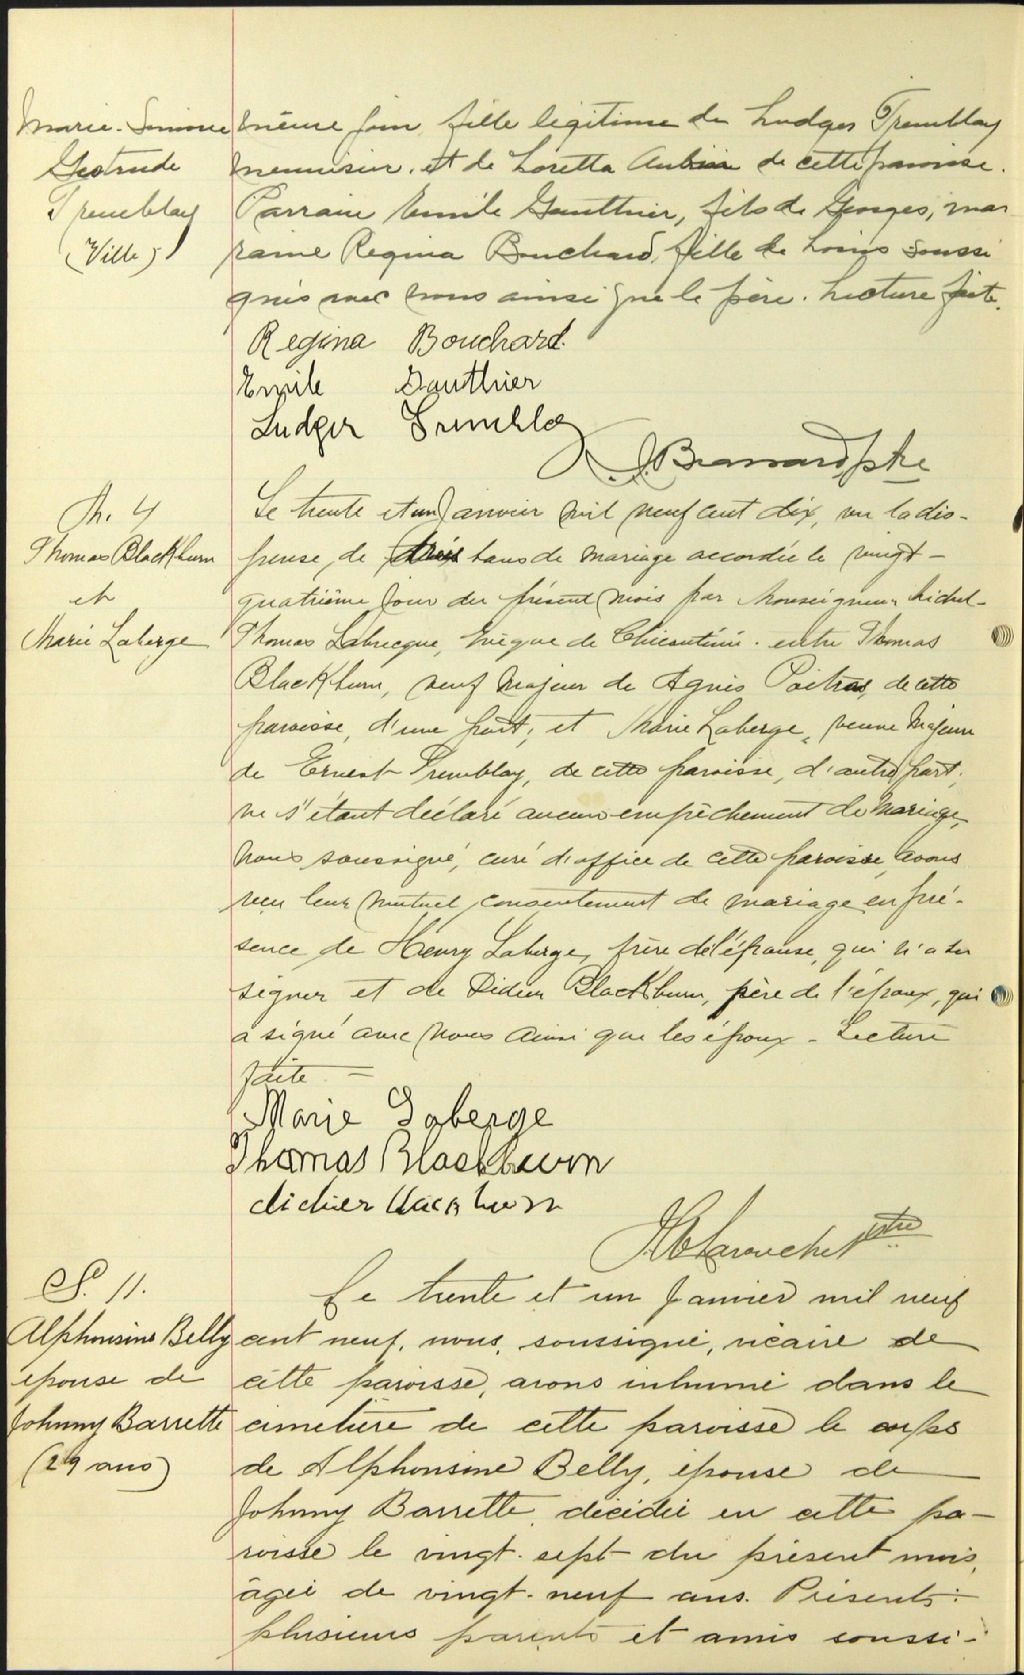 Marie-Simone
Gertrude
Tremblay
(Ville)
même jour, fille légitime de Ludger Tremblay
menuisier, et de Loretta Aubin de cette paroisse.
Parrain Emile Gauthier, fils de Georges, mar
raine Regina Bouchard, fille de Louis soussi
gnés avec nous ainsi que le père. Lecture faite.
Regina Bouchard.
Emile Gauthier
Ludger Tremblay
ptre
M. 4
Thomas Blackburn
et
Marie Laberge
Le trente et un Janvier mil neuf cent dix, vu la dis-
pense de trois bans de mariage accordée le vingt-
quatrième jour du présent mois par Monseigneur Michel-
Thomas Labrecque, Evêque de Chicoutimi. entre Thomas
Blackburn, veuf majeur de Agnès Poitras, de cette
paroisse, d'une part; et Marie Laberge, veuve Majeure
de Ernest Tremblay, de cette paroisse, d'autre part;
ne s'étant déclaré aucun empêchement de Mariage,
nous soussigné, curé d'office de cette paroisse, avons
reçu leur mutuel consentement de mariage en pré-
sence de Henry Laberge, frère de l'épouse, qui n'a su
signer et de Didier Blackburn, père de l'époux, qui
a signé avec nous ainsi que les époux - Lecture
faite. =
Marie Laberge
Thomas Blackburn
didier blackburn
Larouche ptre
S. 11.
Alphonsine Belly
épouse de
Johnny Barrette
(29 ans)
Le trente et un Janvier mil neuf
cent neuf, nous, soussigné, vicaire de
cette paroisse, avons inhumé dans le
cimetière de cette paroisse le corps
de Alphonsine Belly, épouse de
Johnny Barrette, décédée en cette pa-
roisse le vingt-sept du présent mois,
âgée de vingt-neuf ans. Présents:
plusieurs parents et amis soussi-